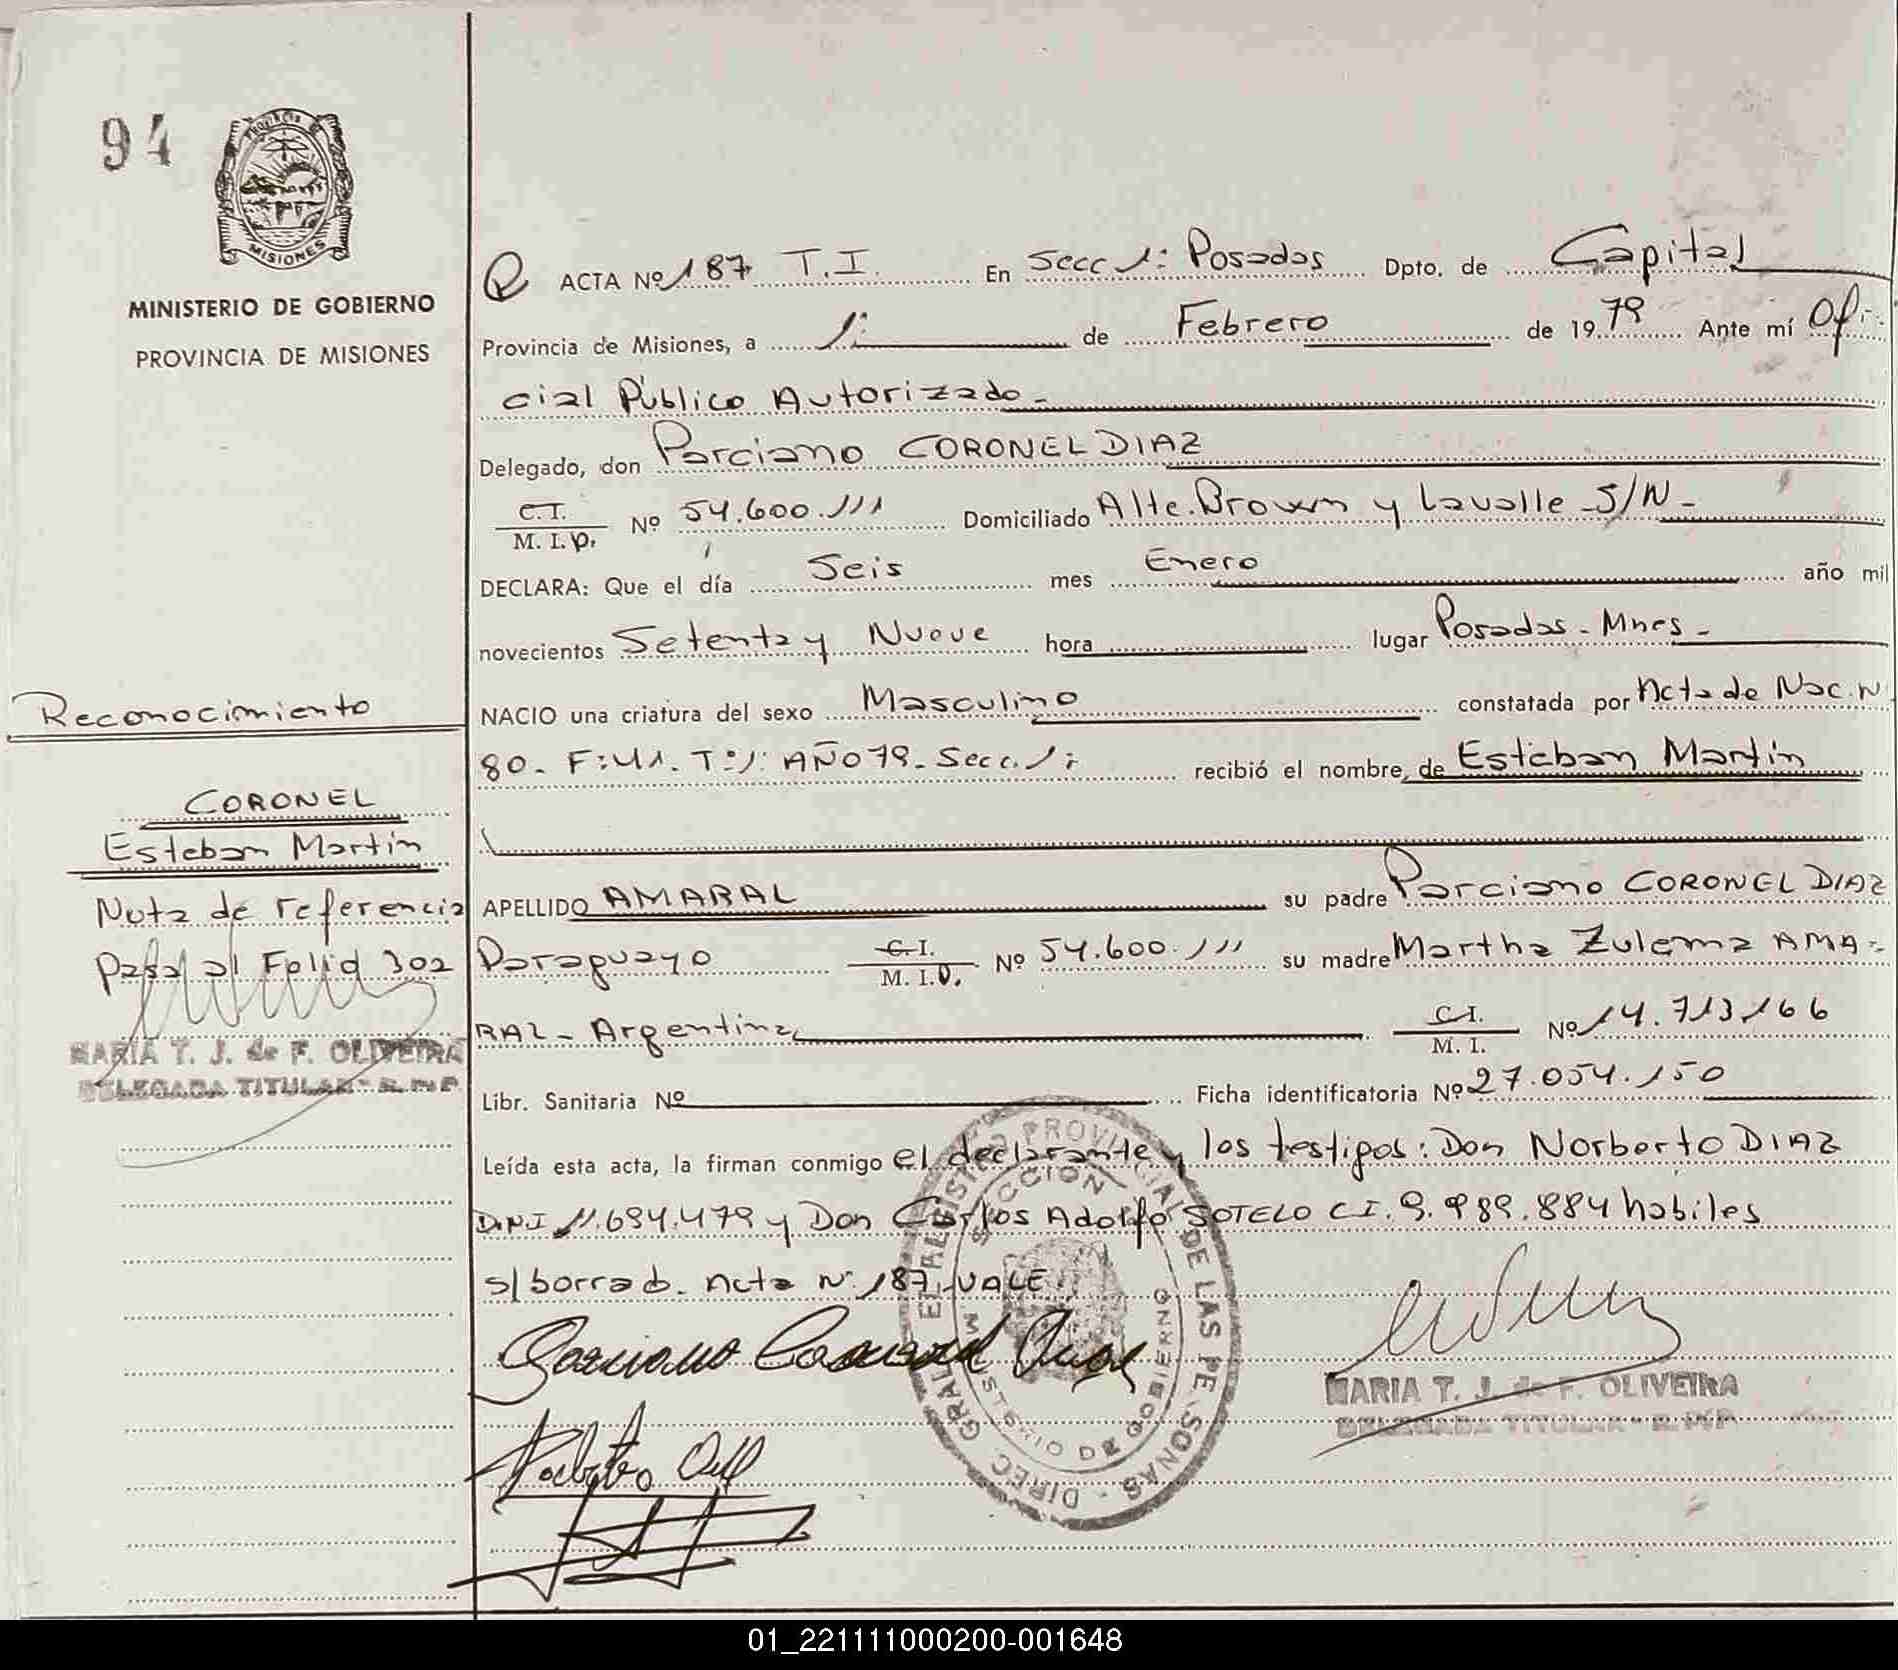 94
PROVINCIA DE
MISIONES
MINISTERIO DE GOBIERNO
PROVINCIA DE MISIONES
Reconocimiento
CORONEL
Esteban Martín
Nota de referencia
pasa al Folio 302
MARIA T. J. de F. OLIVEIRA
DELEGADA TITULAR - R. P. P.
R ACTA Nº 187 T.I. En Secc 1: Posadas Dpto. de Capital
Provincia de Misiones, a 1: de Febrero de 1979 Ante mí Ofi-
cial Público Autorizado -
Delegado, don Parciano CORONEL DIAZ
C.I. M. I. D. Nº 54.600.111 Domiciliado Alte. Brown y Lavalle S/N -
DECLARA: Que el día Seis mes Enero año mil
novecientos Setenta y Nueve hora lugar Posadas - Mnes -
NACIO una criatura del sexo Masculino constatada por Acta de Nac. N
80 - F: 41. T: 1: AÑO 79 - Secc. 1: recibió el nombre de Esteban Martín
APELLIDO AMARAL su padre Parciano CORONEL DIAZ
Paraguayo C.I. M. I. D. Nº 54.600.111 su madre Martha Zulema AMA-
RAL - Argentina C.I. M. I. Nº 14.713.166
Libr. Sanitaria Nº Ficha identificatoria Nº 27.054.150
Leída esta acta, la firman conmigo el declarante y los testigos: Don Norberto DIAZ
D.N.I 11.694.479 y Don Carlos Adolfo SOTELO C.I. 9.989.884 habiles
s/ borrad. Acta N: 187. VALE.
DIREC GRAL DEL REGISTRO PROVINCIAL DE LAS PERSONAS
SECCION 1
MINISTERIO DE GOBIERNO
MARIA T. J. de F. OLIVEIRA
DELEGADA TITULAR - R. P. P.
01_221111000200-001648